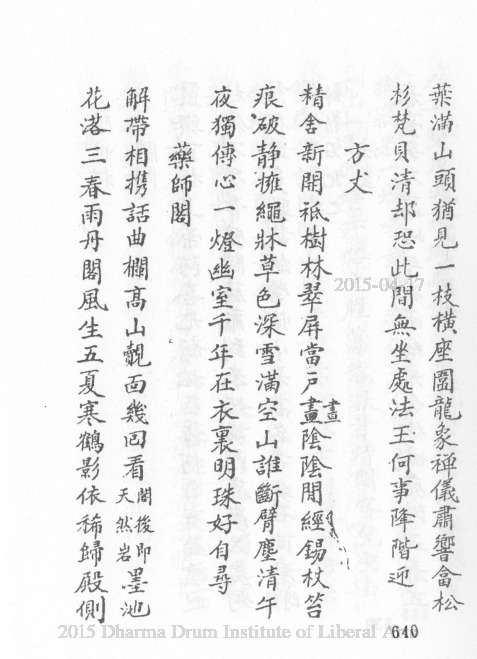 葉滿山頭猶見一枝橫座圍龍象禪儀肅響畣松
杉梵貝清却恐此間無坐處法王何事降階迎
方丈
精舍新開祇樹林翠屏當戶畫陰陰閒經錫杖苔
晝
痕破静擁繩牀草色深雪滿空山誰斷臂塵清午
夜獨傳心一燈幽室千年在衣裏明珠好自尋
藥師閣
解帶相携話曲欄高山覿面幾回看閣後即天然岩墨池
花落三春雨丹閣風生五夏寒鶴影依稀歸殿側
640
2015-04-17
2015 Dharma Drum Institute of Liberal Arts